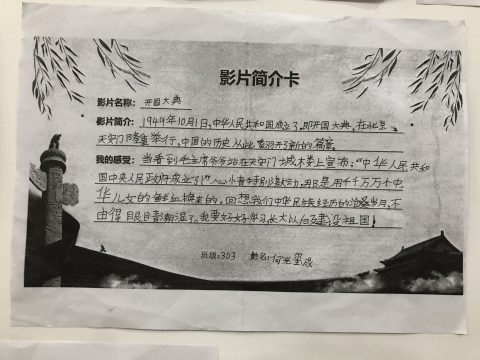 影片简介卡
影片名称：开国大典
影片简介：1949年10月1日，中华人民共和国成立了，即开国大典，在北京
天安门隆重举行，中国的历史从此翻开了新的篇章。
我的感受：当看到毛主席爷爷站在天安门城楼上宣布："中华人民共和
国中央人民政府成立了！"心情特别激动，那是用千千万万个中
华儿女的鲜血换来的，回想我们中华民族经历的沧桑岁月，不
由得眼目影朝湿了，我要好好学习，长大以后建设祖国！
班级：303 姓名：何